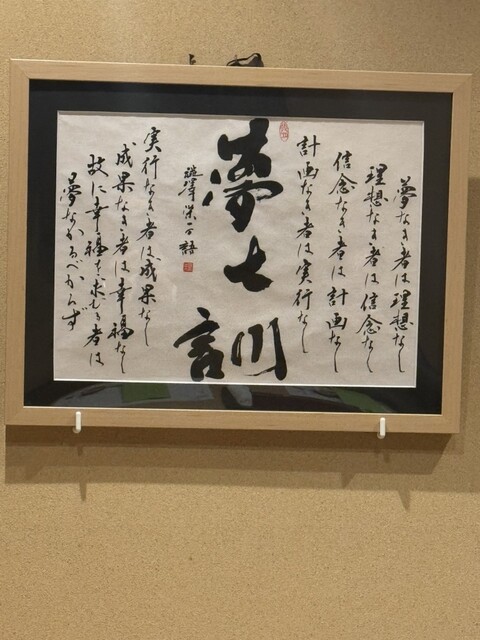 夢なき者は理想なし
理想なき者は信念なし
信念なき者は計画なし
計画なき者は実行なし
夢七訓
澁澤栄一語
実行なき者は成果なし
成果なき者は幸福なし
故に幸福を求むる者は
夢なかるべからず